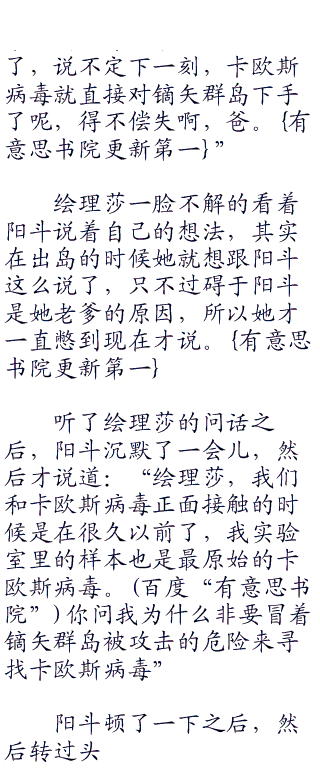 了，说不定下一刻，卡欧斯
病毒就直接对镝矢群岛下手
了呢，得不偿失啊，爸。{有
意思书院更新第一}”
绘理莎一脸不解的看着
阳斗说着自己的想法，其实
在出岛的时候她就想跟阳斗
这么说了，只不过碍于阳斗
是她老爹的原因，所以她才
一直憋到现在才说。{有意思
书院更新第一}
听了绘理莎的问话之
后，阳斗沉默了一会儿，然
后才说道：“绘理莎，我们
和卡欧斯病毒正面接触的时
候是在很久以前了，我实验
室里的样本也是最原始的卡
欧斯病毒。(百度“有意思书
院”)你问我为什么非要冒着
镝矢群岛被攻击的危险来寻
找卡欧斯病毒”
阳斗顿了一下之后，然
后转过头